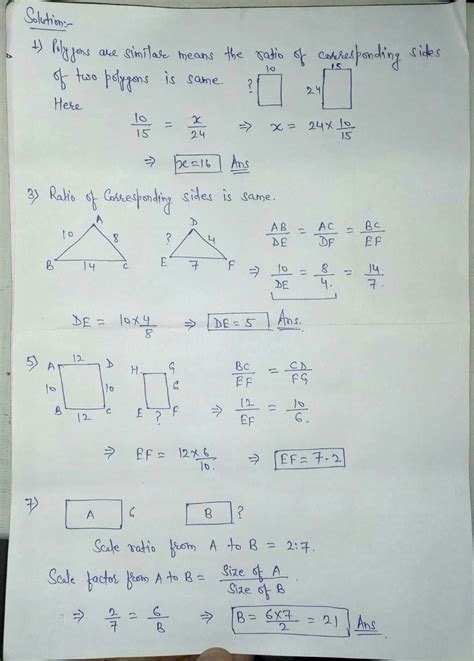 Solution:-
1) Polygons are similar means the ratio of corresponding sides
of two polygons is same.
10 15
? 24
Here
10/15 = x/24 ⇒ x = 24 × 10/15
⇒ x = 16 Ans
3) Ratio of Corresponding sides is same.
A D
10 8 ? 4
B 14 C E 7 F
AB/DE = AC/DF = BC/EF
⇒ 10/DE = 8/4. = 14/7.
DE = 10×4/8 ⇒ DE = 5 Ans.
5) A 12 D H G
10 10 6
B 12 C E ? F
BC/EF = CD/FG
⇒ 12/EF = 10/6.
⇒ EF = 12×6/10. ⇒ EF = 7.2
7) A 6 B ?
Scale ratio from A to B = 2:7.
Scale factor from A to B = Size of A/Size of B
⇒ 2/7 = 6/B ⇒ B = 6×7/2 = 21 Ans